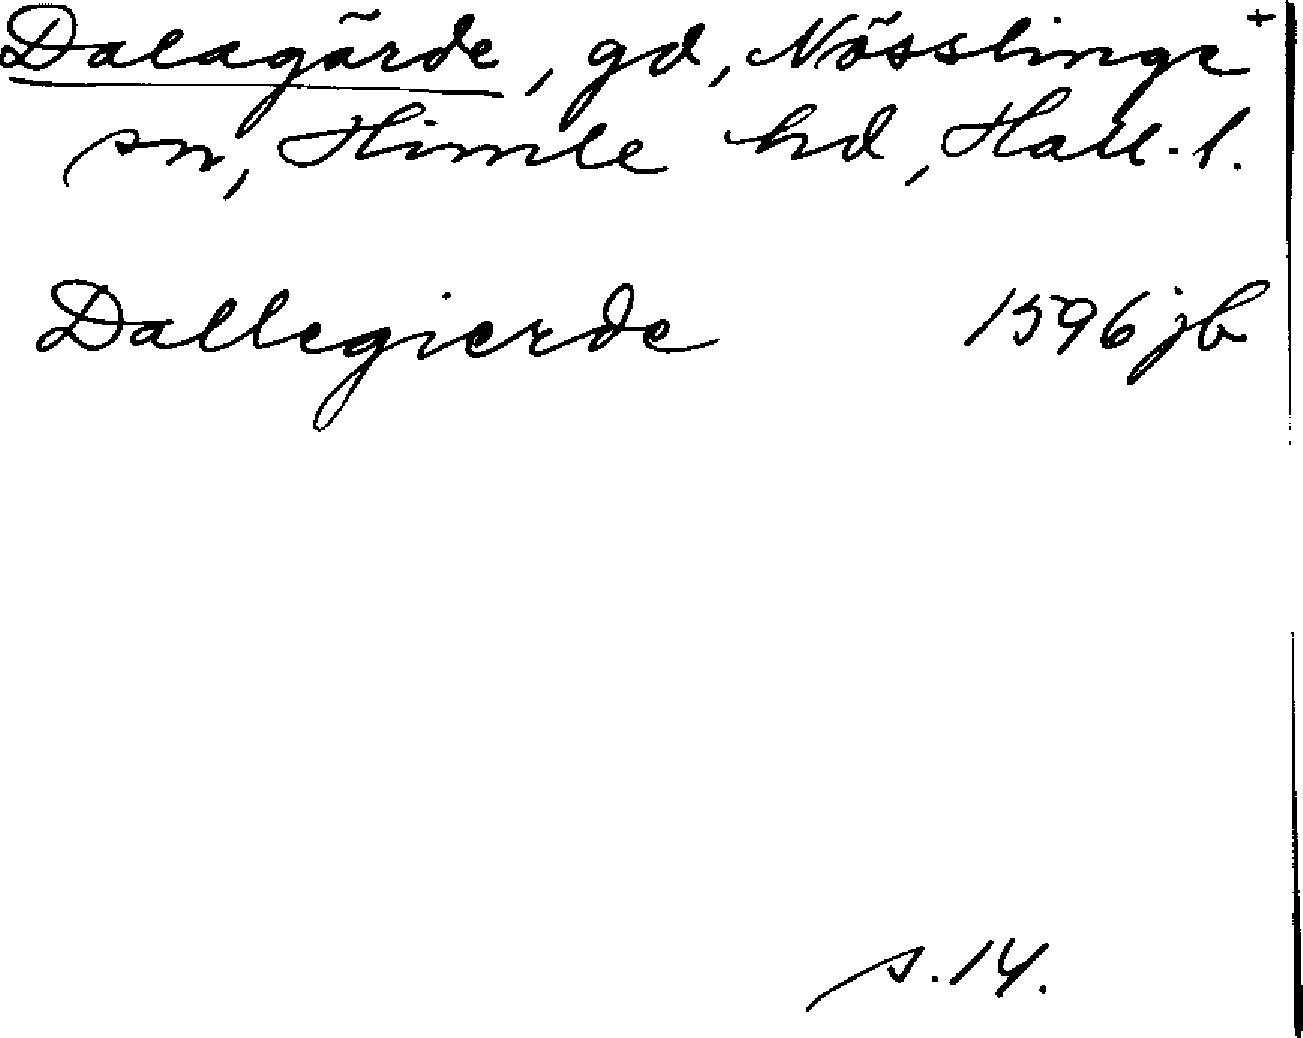 Dalagärde, gd, Nösslinge +
sn, Himle hd, Hall. l.
Dallegierde 1596 jb
s. 14.